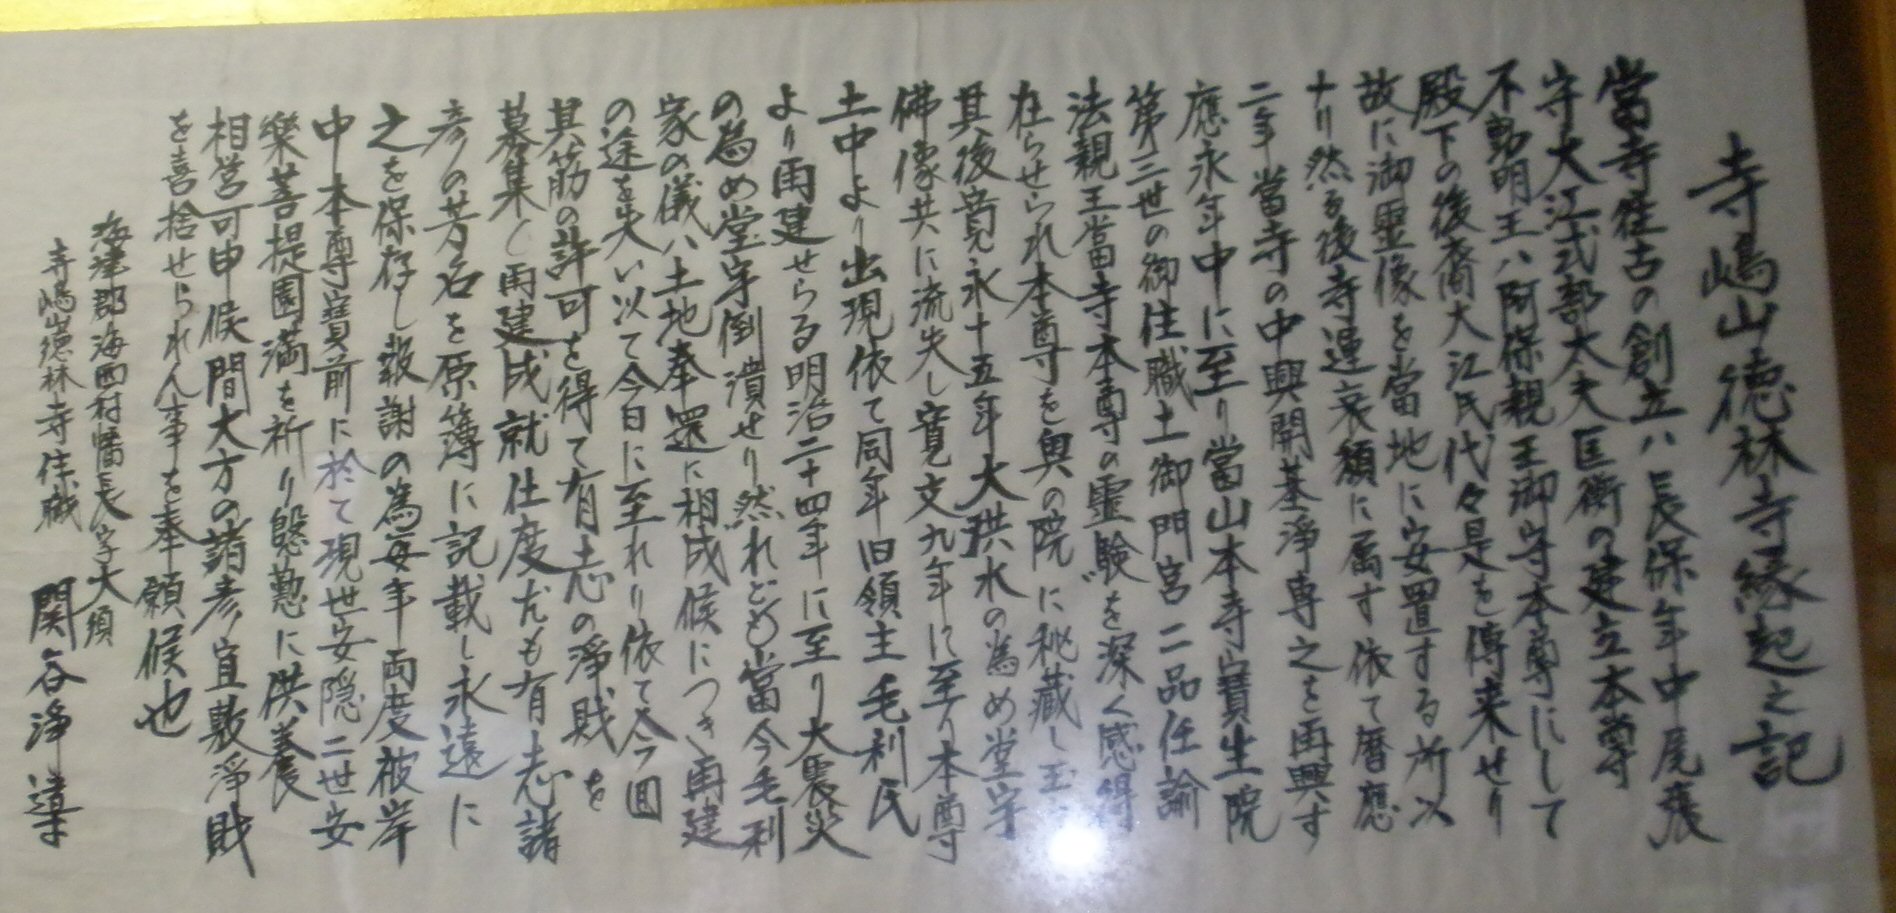 寺嶋山德林寺縁起之記
當寺往古の創立ハ長保年中尾張
守大江式部大夫匡衡の建立本尊
不動明王ハ阿保親王御守本尊にして
殿下の後裔大江氏代々是を傳来せり
故に御霊像を當地に安置する所以
なり然る後寺運衰頽に属す依て暦應
二年當寺の中興開基淨専之を再興す
應永年中に至り當山本寺寳生院
第三世の御住職土御門宮二品任諭
法親王當寺本尊の霊験を深く感得
在らせられ本尊を奥の院に秘藏し玉ふ
其後寛永十五年大洪水の為め堂宇
佛像共に流失し寛文九年に至り本尊
土中より出現依て同年旧領主毛利氏
より再建せらる明治二十四年に至り大震災
の為め堂宇倒潰せり然れども當今毛利
家の儀ハ土地奉還に相成候につき再建
の途を失い以て今日に至れり依て今回
其筋の許可を得て有志の淨財を
募集し再建成就仕度尤も有志諸
彦の芳名を原簿に記載し永遠に
之を保存し報謝の為毎年両度被岸
中本尊寳前に於て現世安隠二世安
樂菩提圓満を祈り慇懃に供養
相営可申候間大方の諸彦宜敷淨財
を喜捨せられん事を奉願候也
海津郡海西村幡長字大須
寺嶋山德林寺住職
関谷淨導